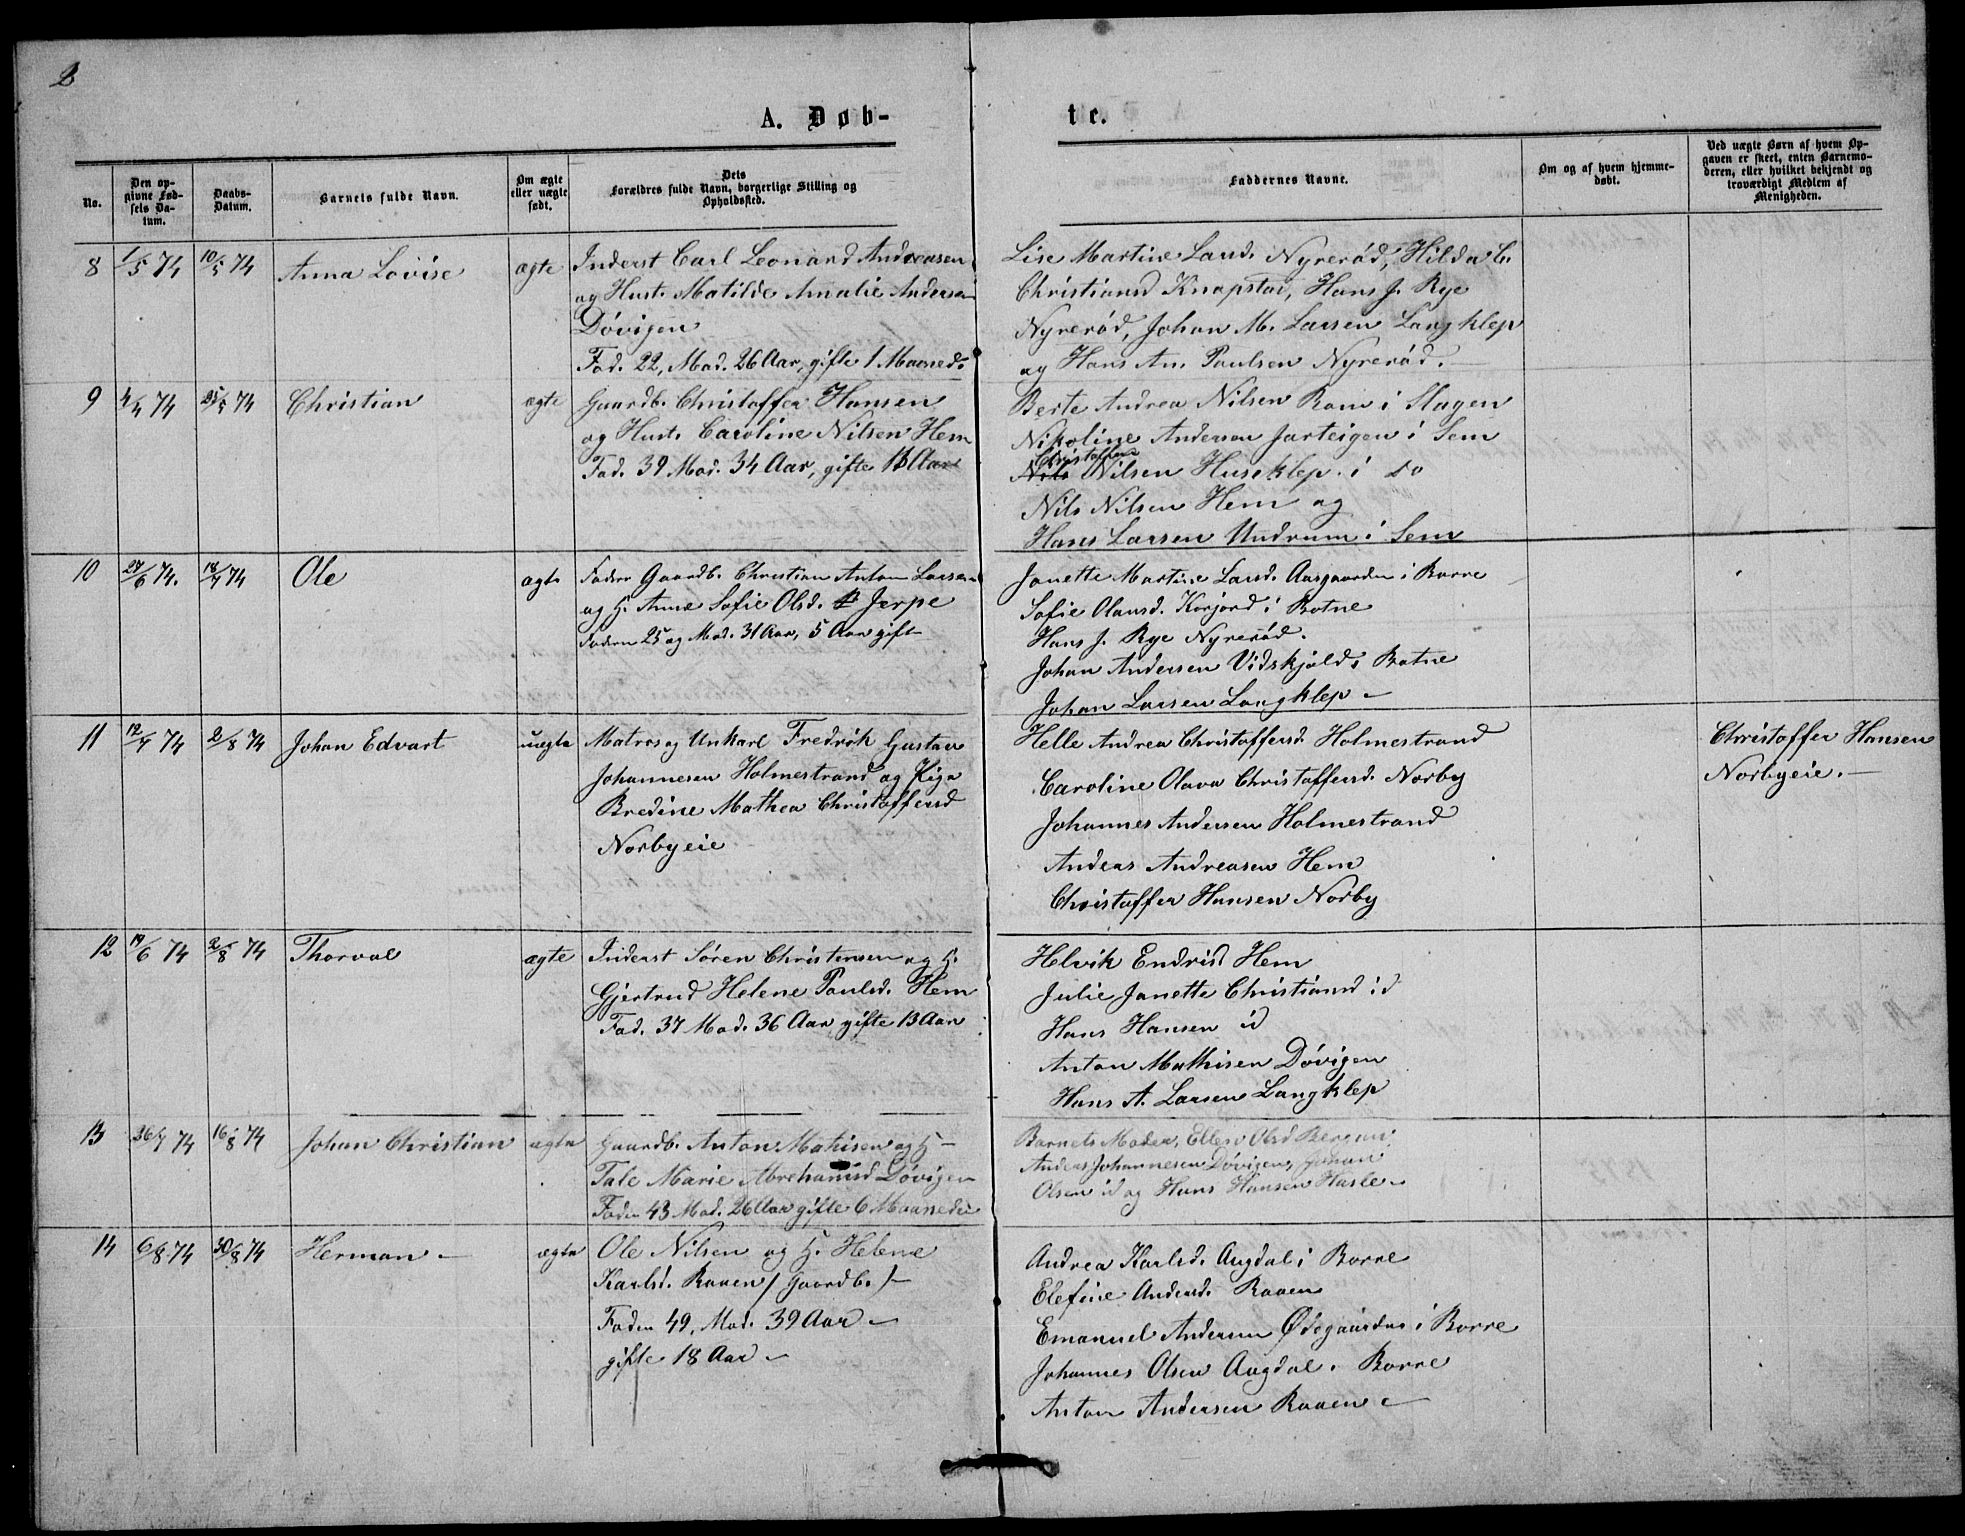 2
A. Døb-
te.
No.
Den opgivne Fødsels Datum.
Daabs-Datum.
Barnets fulde Navn.
Om ægte eller uægte født.
Dets Forældres fulde Navn, borgerlige Stilling og Opholdssted.
Faddernes Navne.
Om og af hvem hjemmedøbt.
Ved uægte Børn af hvem Opgaven er skeet, enten Barnemoderen, eller hvilket bekjendt og troværdigt Medlem af Menigheden.
8 1/5 74 10/5 74 Anna Lovise ægte
Inderst Carl Leonard Andreasen
og Hust. Matilde Amalie Andersen
Døvigen
Fad. 22, Mod. 26 Aar, gifte 1 Maaned.
Lise Martine Larsd. Nyrerød, Hilda C.
Christiansd Knapstad, Hans J. Rye
Nyrerød, Johan M. Larsen Langklep
og Hans An. Paulsen Nyrerød.
9 4/4 74 25/5 74 Christian ægte
Gaardb. Christoffer Hansen
og Hust. Caroline Nilsen Hem
Fad. 39 Mod. 34 Aar, gifte 13 Aar
Berte Andrea Nilsen Rom i Slagen
Nikoline Andersen Jarteigen i Sem
Christoffer
Nils Nilsen Huseklep i do
Nils Nilsen Hem og
Hans Larsen Undrum i Sem
10 27/6 74. 18/7 74 Ole ægte
Fader Gaardb. Christian Anton Larsen
og H. Anne Sofie Olsd. Jerpe
Faderen 25 og Mod. 31 Aar, 5 Aar gift
Janette Martine Larsd. Aasgaarden i Borre
Sofie Olausd. Korjord i Botne
Hans J. Rye Nyrerød.
Johan Andersen Vidskjold i Botne
Johan Larsen Langklep –
11 12/7 74 2/8 74 Johan Edvart uægte
Matros og Unkarl Fredrik Gustav
Johannesen Holmestrand og Piga
Bredine Mathea Christoffersd
Norbyeie
Helle Andrea Christoffersd. Holmestrand
Caroline Olava Christoffersd. Norby
Johannes Andersen Holmestrand
Anders Andreasen Hem
Christoffer Hansen Norby
Christoffer Hansen
Norbyeie. –
12 19/6 74 2/8 74 Thorval ægte
Inderst Søren Christensen og H.
Gjertrud Helene Paulsd. Hem
Fad. 37 Mod. 36 Aar gifte 13 Aar
Helvik Endrisd Hem
Julie Janette Christiansd id
Hans Hansen id
Anton Mathisen Døvigen
Hans A. Larsen Langklep
13 26/7 74 16/8 74 Johan Christian ægte
Gaardb. Anton Mathisen og H –
Tale Marie Abrehamsd Døvigen
Faden 43 Mod. 26 Aar gifte 6 Maaneder
Barnets Moder, Ellen Olsd Bergan,
Anders Johannesen Døvigen, Johan
Olsen id og Hans Hansen Hasle –
14 6/8 74 30/8 74 Herman – ægte
Ole Nilsen og H. Helene
Karlsd. Raaen / Gaardb. / –
Faden 49, Mod. 39 Aar –
gifte 18 Aar –
Andrea Karlsd. Augdal i Borre
Elefine Andersd. Raaen
Emanuel Andersen Ødegaarden i Borre
Johannes Olsen Augdal i Borre
Anton Andersen Raaen –